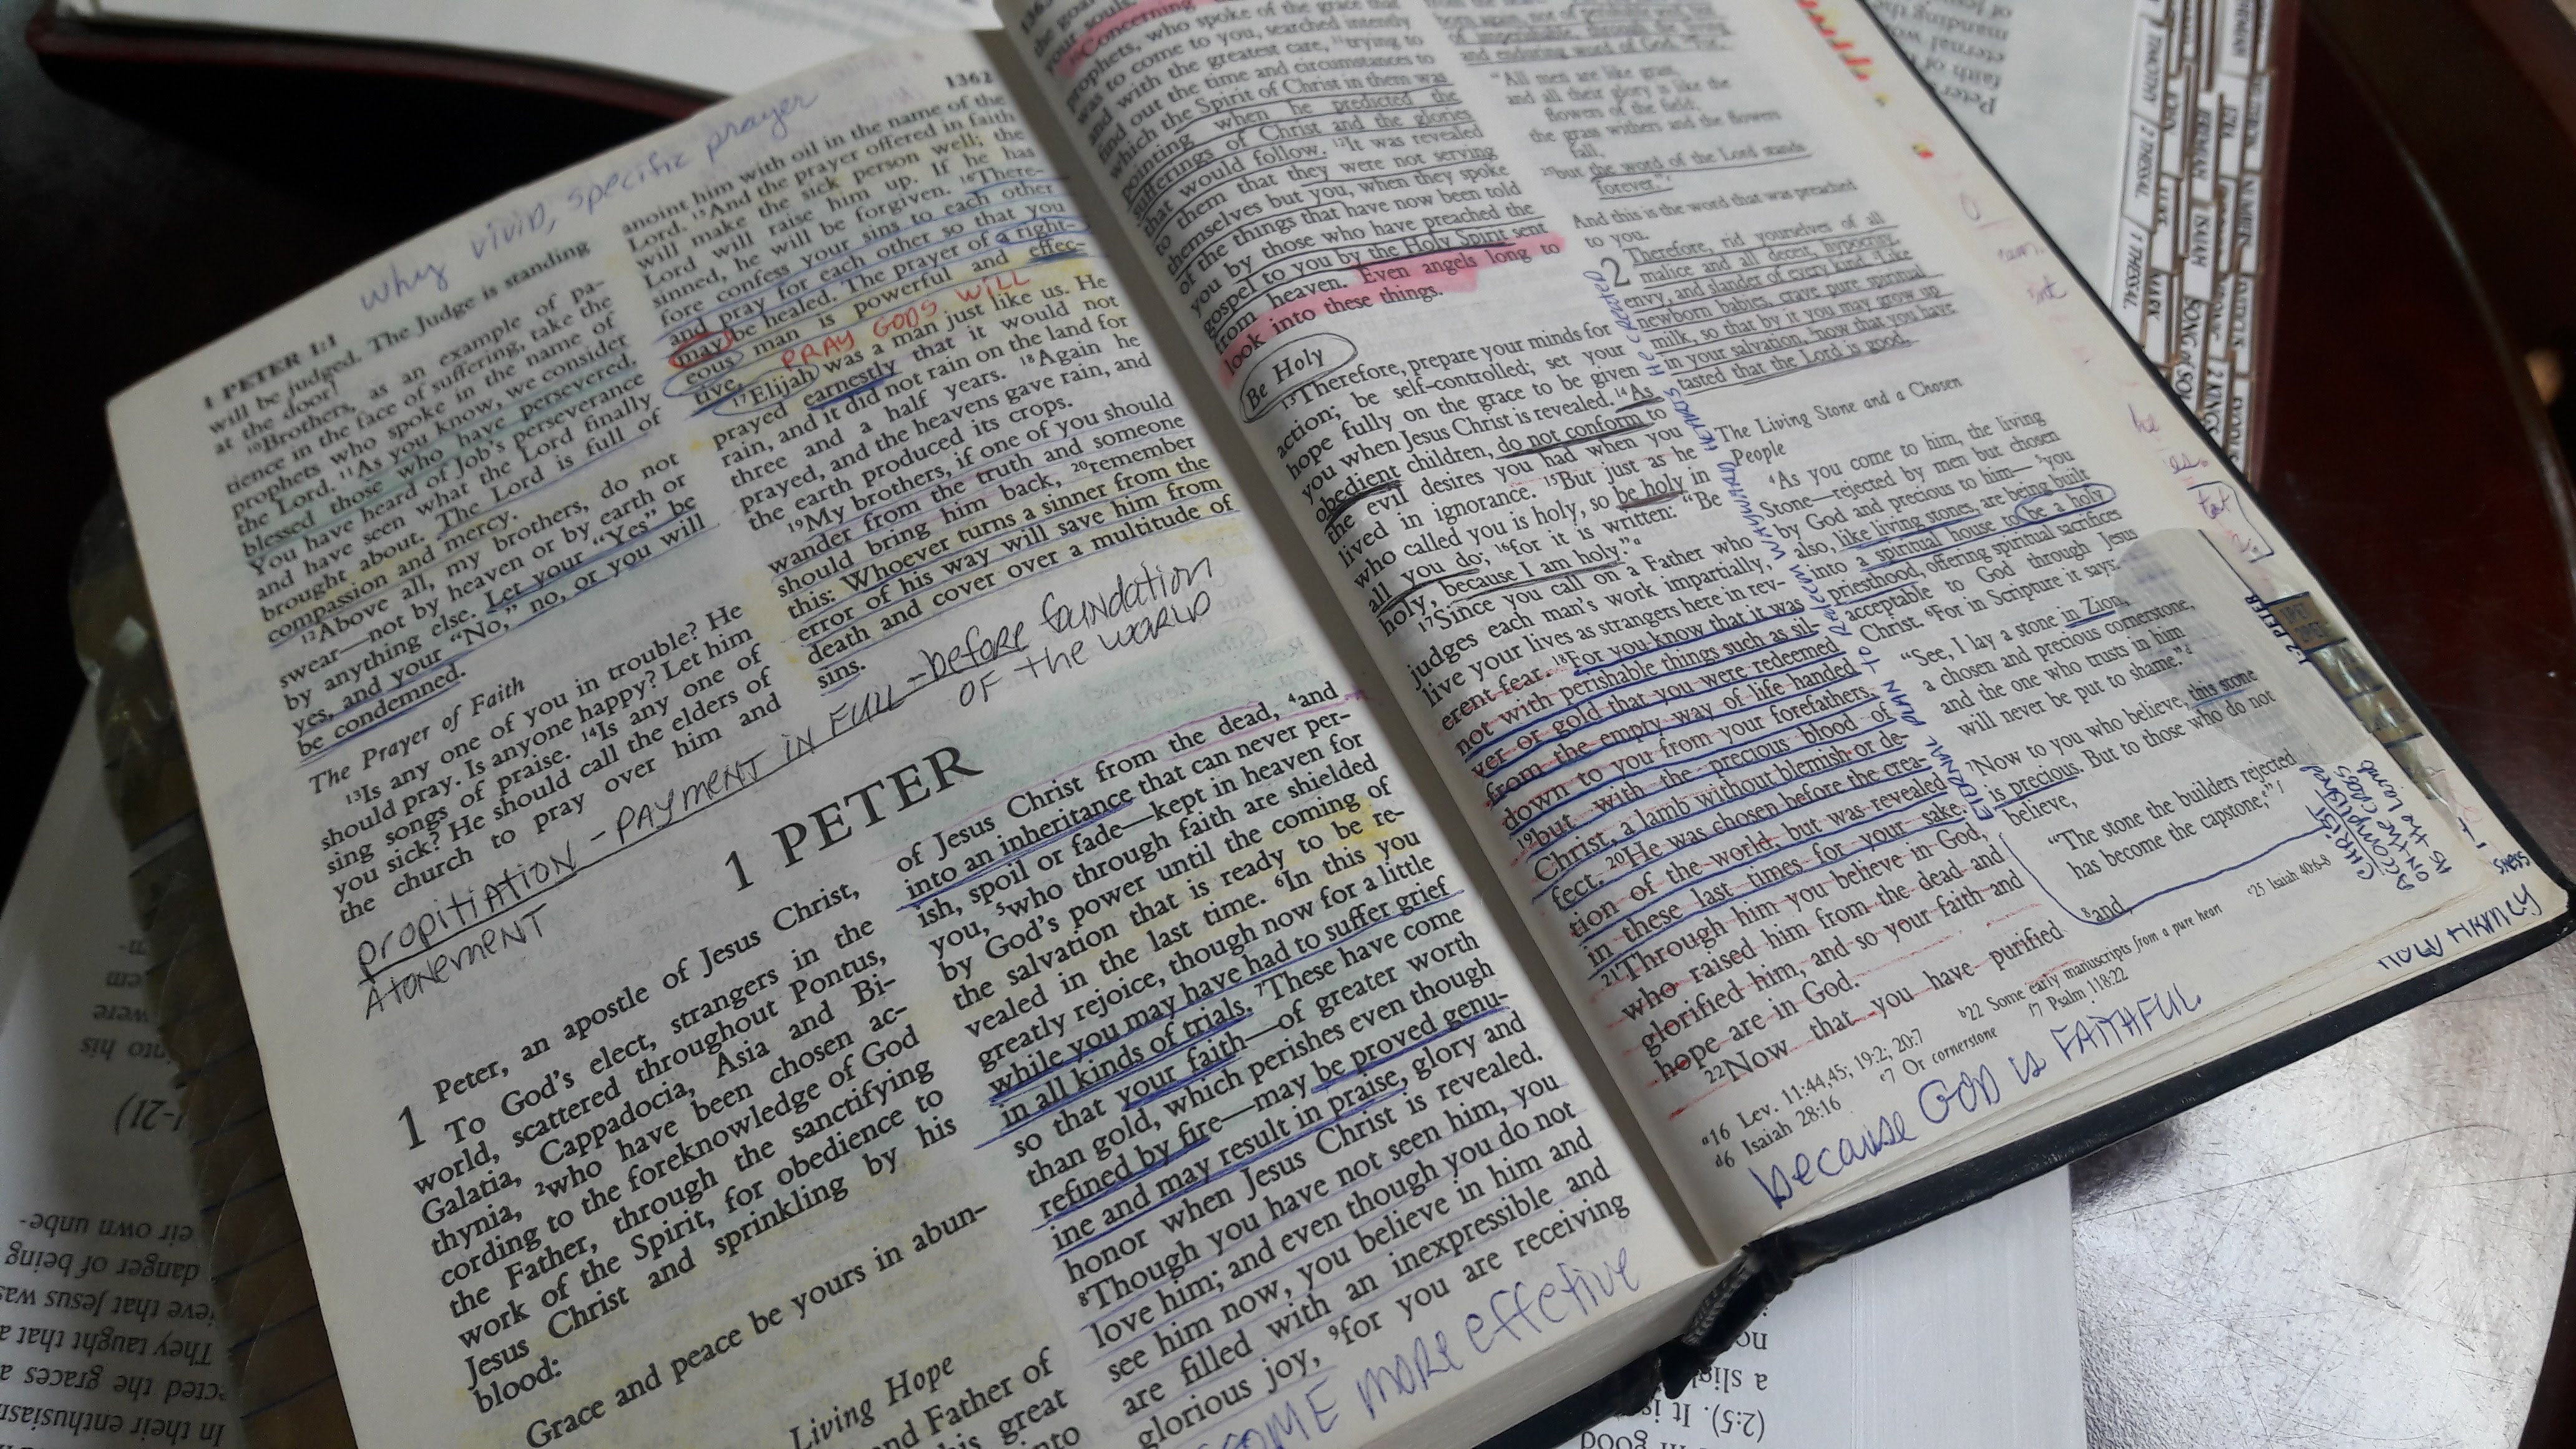 why vivid, specific prayer
1 PETER 1:1
1362
will be judged. The Judge is standing
at the door!
10Brothers, as an example of pa-
tience in the face of suffering, take the
prophets who spoke in the name of
the Lord. 11As you know, we consider
blessed those who have persevered.
You have heard of Job's perseverance
and have seen what the Lord finally
brought about. The Lord is full of
compassion and mercy.
12Above all, my brothers, do not
swear—not by heaven or by earth or
by anything else. Let your "Yes" be
yes, and your "No," no, or you will
be condemned.
The Prayer of Faith
13Is any one of you in trouble? He
should pray. Is anyone happy? Let him
sing songs of praise. 14Is any one of
you sick? He should call the elders of
the church to pray over him and
anoint him with oil in the name of the
Lord. 15And the prayer offered in faith
will make the sick person well; the
Lord will raise him up. If he has
sinned, he will be forgiven. 16There-
fore confess your sins to each other
and pray for each other so that you
may be healed. The prayer of a right-
eous man is powerful and effec-
tive.
PRAY GODS WILL
17Elijah was a man just like us. He
prayed earnestly that it would not
rain, and it did not rain on the land for
three and a half years. 18Again he
prayed, and the heavens gave rain, and
the earth produced its crops.
19My brothers, if one of you should
wander from the truth and someone
should bring him back, 20remember
this: Whoever turns a sinner from the
error of his way will save him from
death and cover over a multitude of
sins.
propitiation - PAYMENT IN FULL - before foundation
OF THE WORLD
Atonement
1 PETER
1 Peter, an apostle of Jesus Christ,
To God's elect, strangers in the
world, scattered throughout Pontus,
Galatia, Cappadocia, Asia and Bi-
thynia, 2who have been chosen ac-
cording to the foreknowledge of God
the Father, through the sanctifying
work of the Spirit, for obedience to
Jesus Christ and sprinkling by his
blood:
Grace and peace be yours in abun-
Living Hope
and Father of
his great
into
of Jesus Christ from the dead, 4and
into an inheritance that can never per-
ish, spoil or fade—kept in heaven for
you, 5who through faith are shielded
by God's power until the coming of
the salvation that is ready to be re-
vealed in the last time. 6In this you
greatly rejoice, though now for a little
while you may have had to suffer grief
in all kinds of trials. 7These have come
so that your faith—of greater worth
than gold, which perishes even though
refined by fire—may be proved genu-
ine and may result in praise, glory and
honor when Jesus Christ is revealed.
8Though you have not seen him, you
love him; and even though you do not
see him now, you believe in him and
are filled with an inexpressible and
glorious joy, 9for you are receiving
MORE effetive
your souls.
10Concerning
prophets, who spoke of the grace that
was to come to you, searched intently
and with the greatest care, 11trying to
find out the time and circumstances to
which the Spirit of Christ in them was
pointing when he predicted the
sufferings of Christ and the glories
that would follow. 12It was revealed
to them that they were not serving
themselves but you, when they spoke
of the things that have now been told
you by those who have preached the
gospel to you by the Holy Spirit sent
from heaven. Even angels long to
look into these things.
Be Holy
13Therefore, prepare your minds for
action; be self-controlled; set your
hope fully on the grace to be given
you when Jesus Christ is revealed. 14As
obedient children, do not conform to
the evil desires you had when you
lived in ignorance. 15But just as he
who called you is holy, so be holy in
all you do; 16for it is written: "Be
holy, because I am holy."a
17Since you call on a Father who
judges each man's work impartially,
live your lives as strangers here in rev-
erent fear. 18For you know that it was
not with perishable things such as sil-
ver or gold that you were redeemed
from the empty way of life handed
down to you from your forefathers,
19but with the precious blood of
Christ, a lamb without blemish or de-
fect. 20He was chosen before the crea-
tion of the world, but was revealed
in these last times for your sake.
21Through him you believe in God,
who raised him from the dead and
glorified him, and so your faith and
hope are in God.
22Now that you have purified
ETERNAL PLAN to Redeem WAYWARD HEARTS He created
and enduring word of God. 24For,
"All men are like grass,
and all their glory is like the
flowers of the field;
the grass withers and the flowers
fall,
25but the word of the Lord stands
forever."c
And this is the word that was preached
to you.
2 Therefore, rid yourselves of all
malice and all deceit, hypocrisy,
envy, and slander of every kind. 2Like
newborn babies, crave pure spiritual
milk, so that by it you may grow up
in your salvation, 3now that you have
tasted that the Lord is good.
The Living Stone and a Chosen
People
4As you come to him, the living
Stone—rejected by men but chosen
by God and precious to him— 5you
also, like living stones, are being built
into a spiritual house to be a holy
priesthood, offering spiritual sacrifices
acceptable to God through Jesus
Christ. 6For in Scripture it says:
"See, I lay a stone in Zion,
a chosen and precious cornerstone,
and the one who trusts in him
will never be put to shame."d
7Now to you who believe, this stone
is precious. But to those who do not
believe,
"The stone the builders rejected
has become the capstone,e"f
8and,
CHRIST
Accomplished
ON the cross
AS the Lamb
a16 Lev. 11:44,45; 19:2; 20:7
b22 Some early manuscripts from a pure heart
c25 Isaiah 40:6-8
d6 Isaiah 28:16
e7 Or cornerstone
f7 Psalm 118:22
because GOD is FAITHFUL
1-2 PETER
1 TIMOTHY
2 THESSAL
1 THESSAL
JOHN
LUKE
MARK
EZRA
JEREMIAH
ISAIAH
SONG of SOL
NUMBER
2 KINGS
EXODUS
1-21)
eir own unbe-
danger of being
ieve that Jesus was
They taught that a
cted the graces a
In their enthusiasm
into his
were
(2:5). It is
a sligh